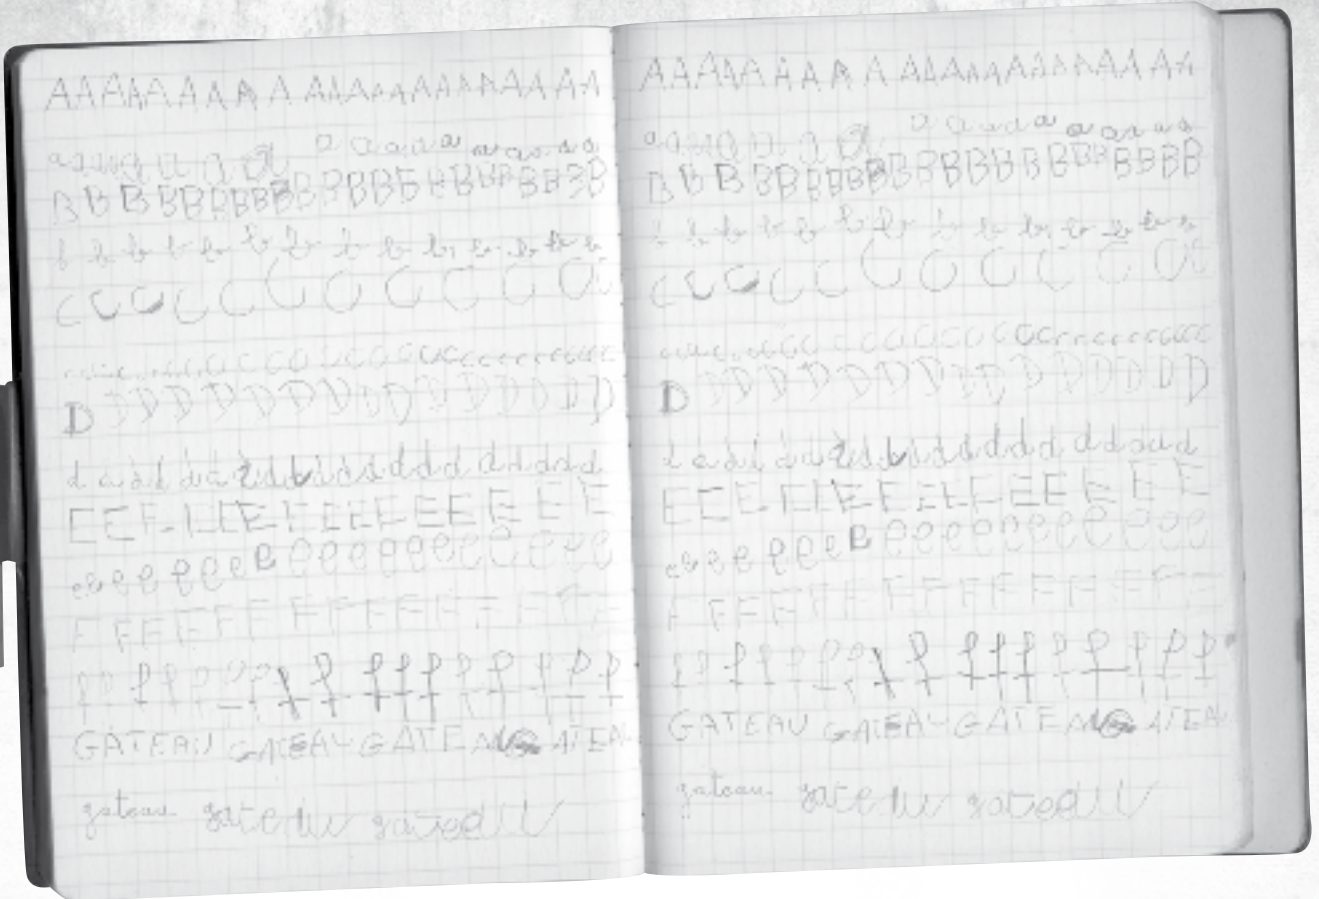 A A A A A A A A A A A A A A A A A A A A A A
a a a a a a a a a a a a a a a a a a
B B B B B B B B B B B B B B B B B B B B
b b b b b b b b b b b b b b
C C C C C C C C C C C
c c c c c c c c c c c c c c c c c c c c c c c
D D D D D D D D D D D D D D D D
d d d d d d d d d d d d d d d d d d d
E E E E E E E E E E E E E E E
e e e e e e e e e e e e e e e e e
F F F F F F F F F F F F F F
f f f f f f f f f f f f f f f f f
GATEAU GATEAU GATEAU GATEAU
gateau gateau gateau
A A A A A A A A A A A A A A A A A A A A A A
a a a a a a a a a a a a a a a a a a
B B B B B B B B B B B B B B B B B B B B
b b b b b b b b b b b b b b
C C C C C C C C C C C
c c c c c c c c c c c c c c c c c c c c c c c
D D D D D D D D D D D D D D D D
d d d d d d d d d d d d d d d d d d d
E E E E E E E E E E E E E E E
e e e e e e e e e e e e e e e e e
F F F F F F F F F F F F F F
f f f f f f f f f f f f f f f f f
GATEAU GATEAU GATEAU GATEAU
gateau gateau gateau